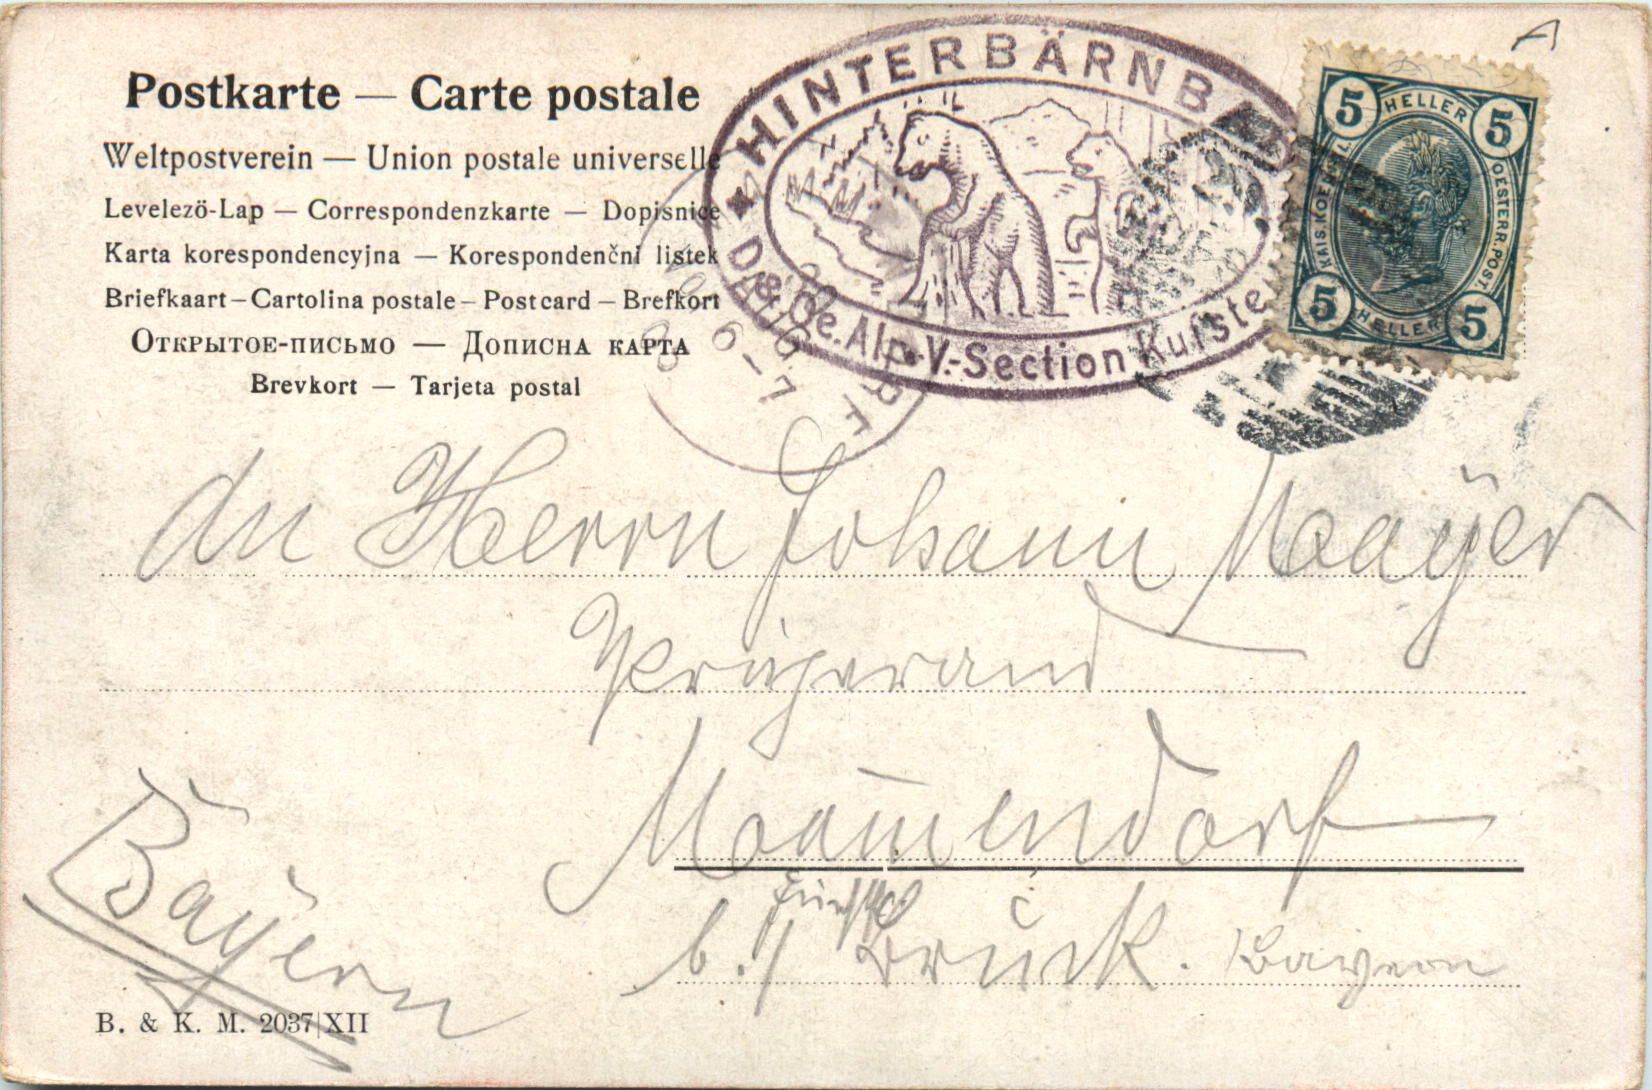 Postkarte — Carte postale
Weltpostverein — Union postale universelle
Levelező-Lap — Correspondenzkarte — Dopisnice
Karta korespondencyjna — Korespondenční listek
Briefkaart – Cartolina postale – Postcard – Brefkort
Открытое-письмо — Дописна карта
Brevkort — Tarjeta postal
HINTERBÄRNBAD
D. & Oe. Alp.-V.-Section Kufstein
6–7
5 HELLER 5
KAIS. KOENIGL. OESTERR. POST.
5 HELLER 5
A
An Herrn Johann Mayer
Mammendorf
b./ Bruck. Bayern
Bayern
B. & K. M. 2037|XII